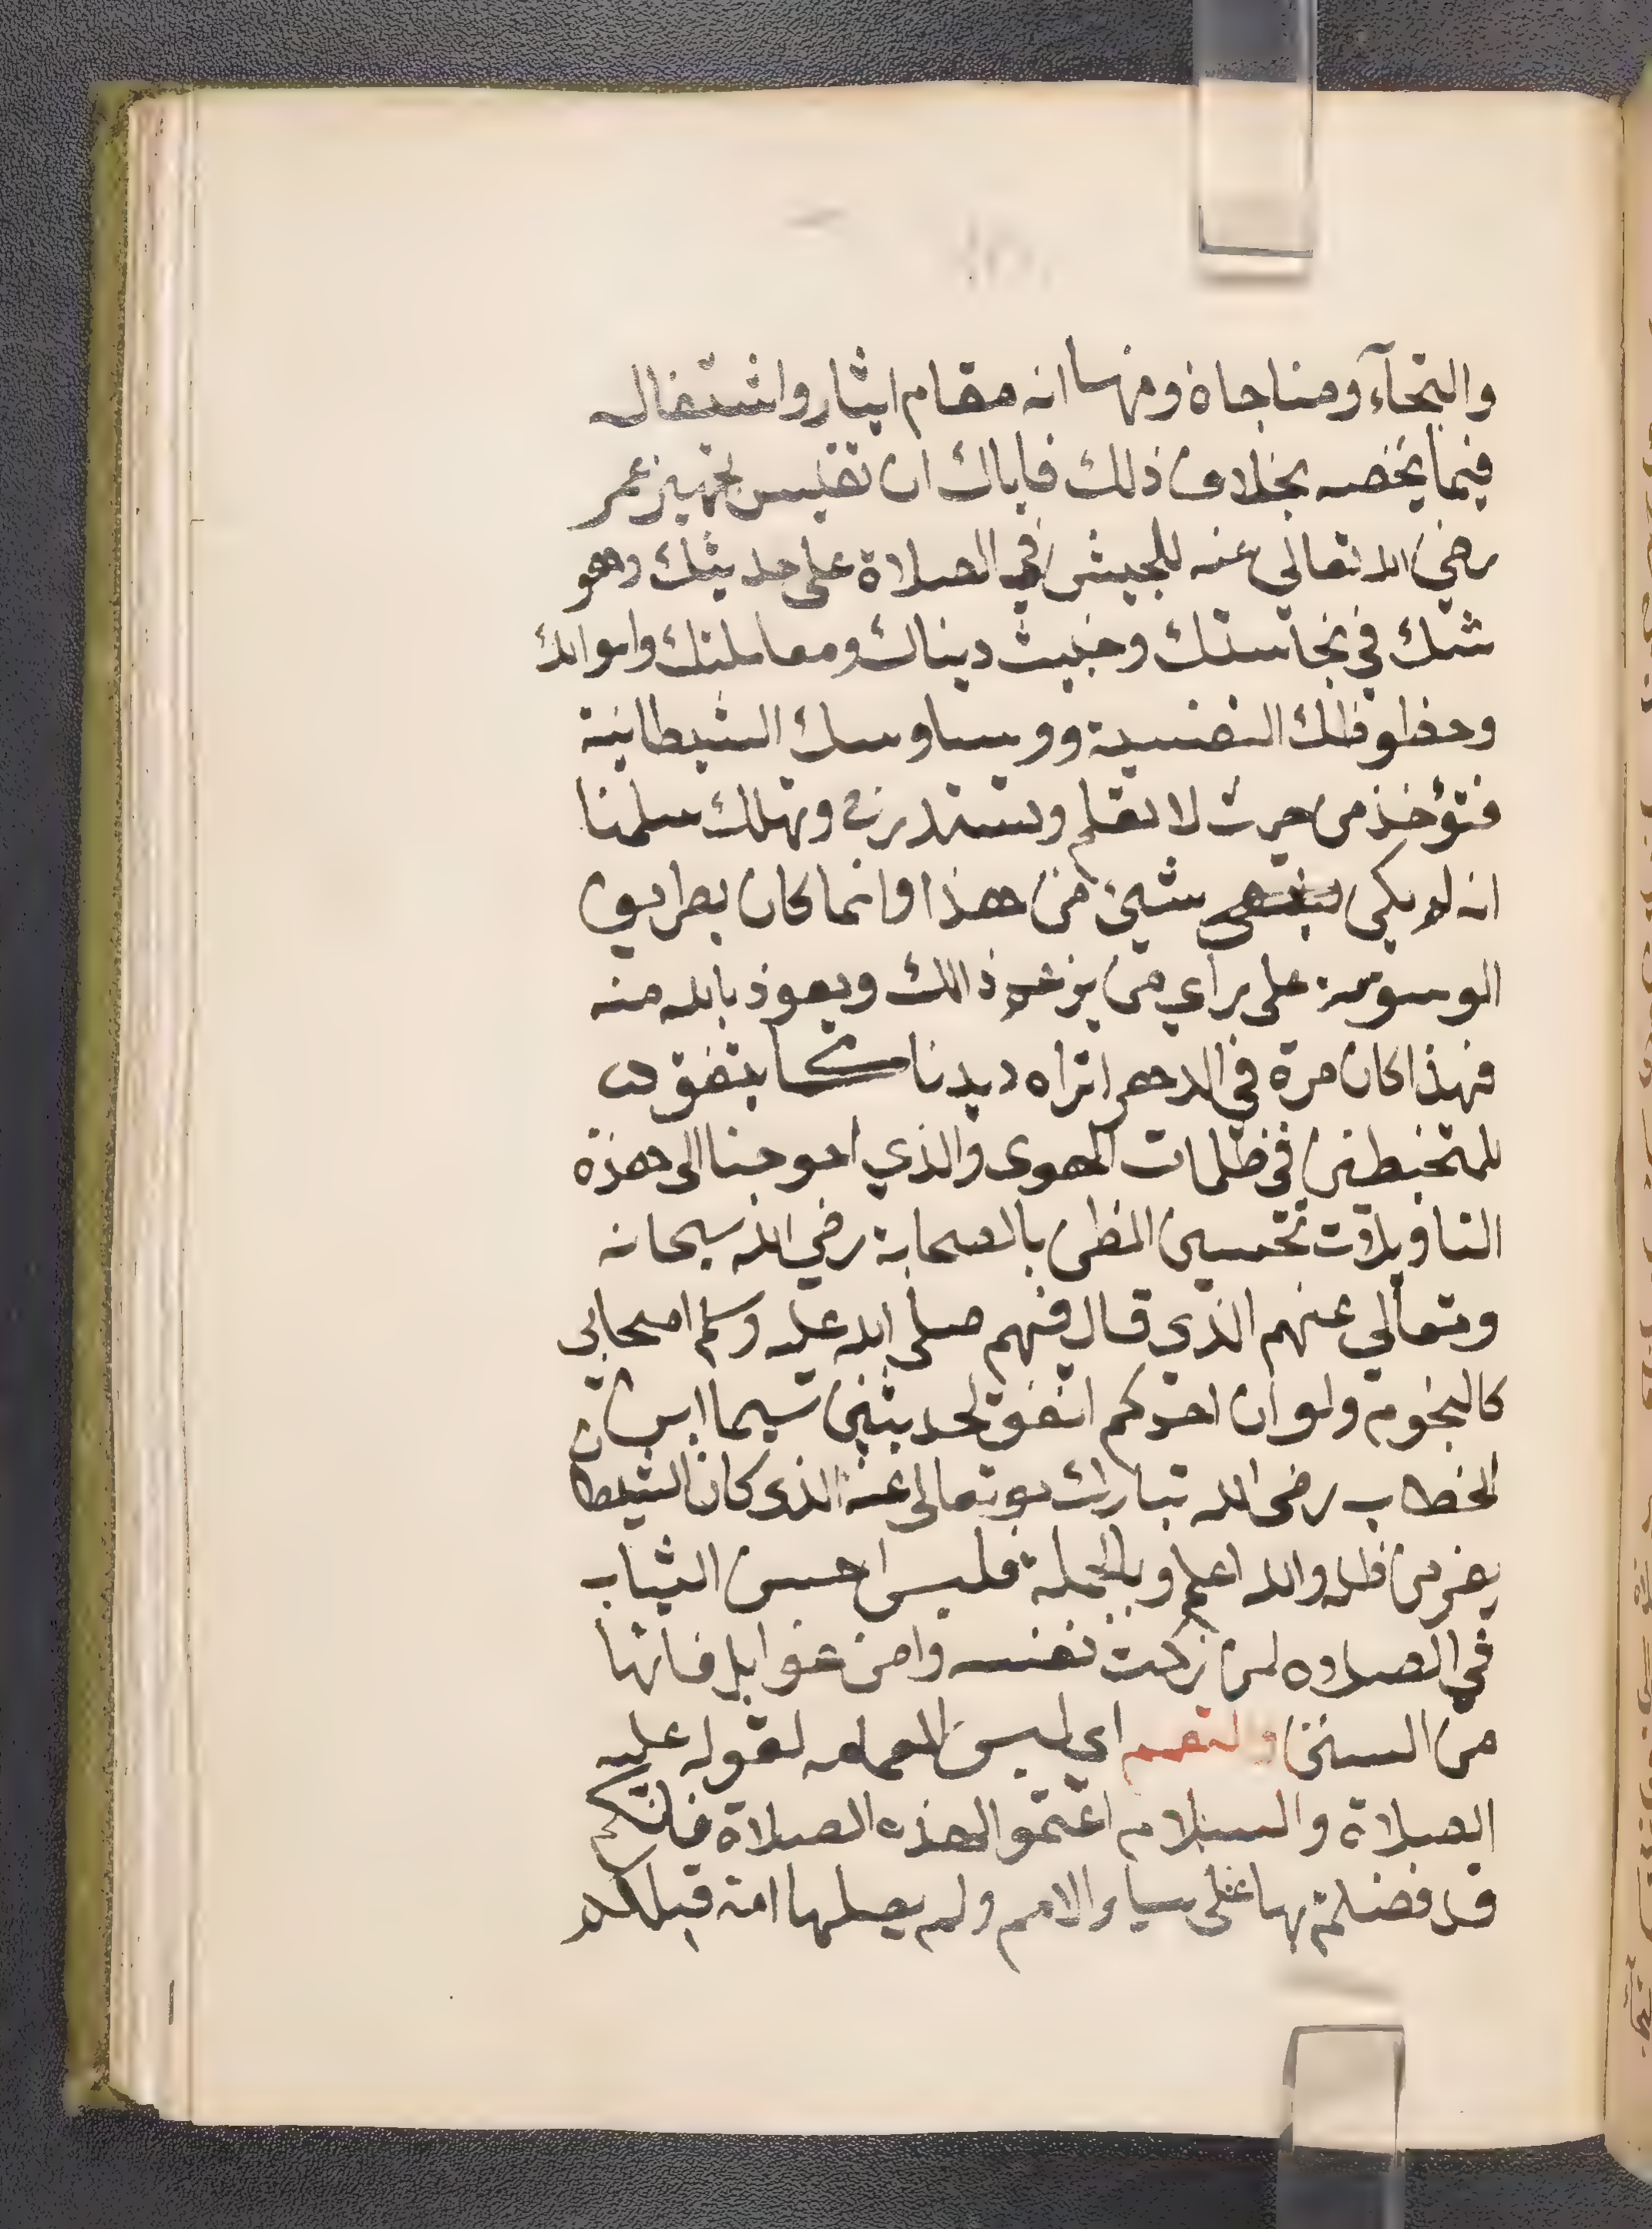 والتجآء ومناجاة ومنها انه مقام ايثار واشتغاله
فيما يخصه بخلاف ذلك فاياك ان تقيس تجهيز عمر
رضي الله تعالى عنه للجيش في الصلاة على حديثك وهو
شك في نجاستك وخبيث ديناك ومعاملتك واموالك
وحظوظك النفسية ووساوسك الشيطانية
فتؤخذ من حيث لا تعلم وتستدرج وتهلك سلمنا
انه لم يكن شيئ من هذا وانما كان بطريق
الوسوسة على راي من يزعم ذالك ونعوذ بالله منه
فهذا كان مرة في الدهر اتراه ديدنا كما يتفق
للمتخبطين في ظلمات الهوى والذي احوجنا الى هذة
التاويلات تحسين الظن بالصحابة رضي الله سبحانه
وتعالى عنهم الذي قال فيهم صلى الله عليه وسلم اصحابي
كالنجوم ولو ان احدكم انفق لحديثين سيما ابن
الخطاب رضى الله تبارك وتعالى عنه الذى كان الشيطان
يفر من ظله والله اعلم وبالجملة فلبس احسن الثياب
في الصلاه لمن زكت نفسه وامن غوايلها فانها
من السنن والتعمم اي لبس العمامه لقوله عليه
الصلاة والسلام اعتموا لهذه الصلاة فانكم
قد فضلتم بها على سياير الامم ولم يصلها امة قبلكم